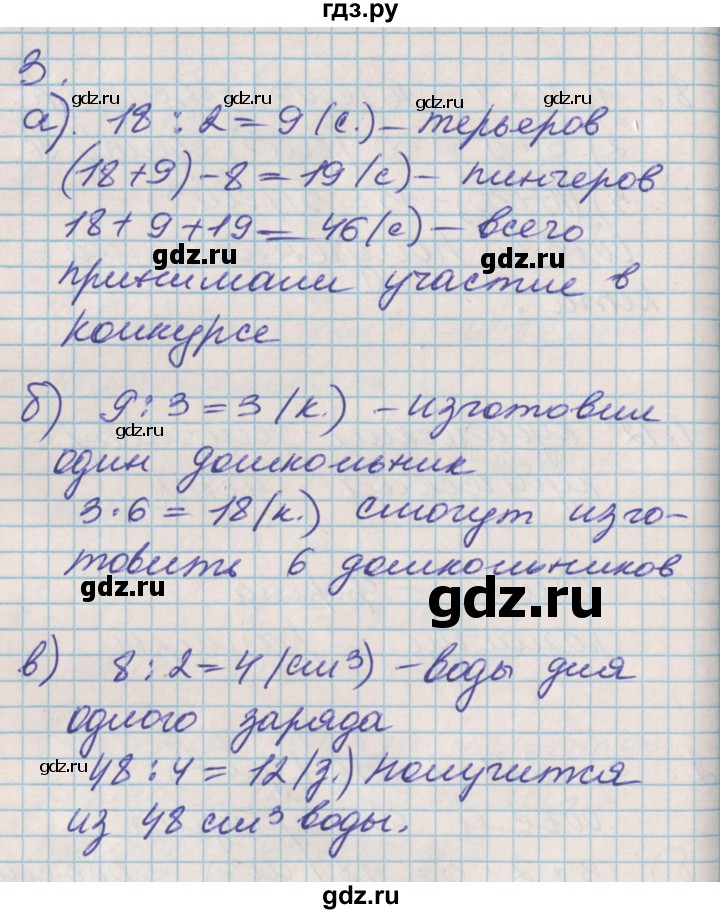 гдз.ру
3.
gdz.ru gdz.ru gdz.ru
а). 18 : 2 = 9 (с.) – терьеров
(18 + 9) – 8 = 19 (с) – пинчеров
18 + 9 + 19 = 46 (с) – всего
gdz.ru gdz.ru
принимали участие в
конкурсе
б) 9 : 3 = 3 (к.) – изготовил
gdz.ru
один дошкольник
3 · 6 = 18 (к.) смогут изго-
товить 6 дошкольников
gdz.ru gdz.ru
в) 8 : 2 = 4 (см³) – воды для
одного заряда
gdz.ru
48 : 4 = 12 (з.) получится
из 48 см³ воды.
gdz.ru